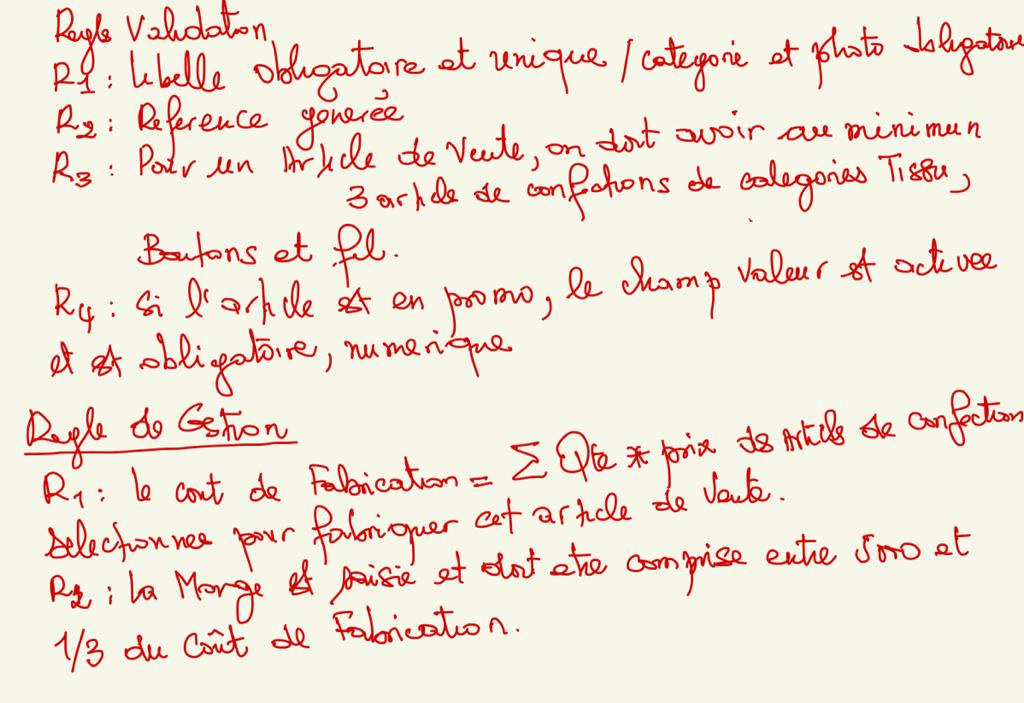 Regle Validation
R1 : libelle obligatoire et unique / categorie et photo obligatoire
R2 : Reference generée
R3 : Pour un Article de Vente, on doit avoir au minimun
3 article de confections de categories Tissu,
Boutons et fil.
R4 : Si l'article est en promo, le champ valeur est activee
et est obligatoire, numerique
Regle de Gestion
R1 : le cout de Fabrication = Σ Qte * prix des Articles de confection
selectionnee pour fabriquer cet article de Vente.
R2 : la Marge est saisie et doit etre comprise entre 5000 et
1/3 du Coût de Fabrication.